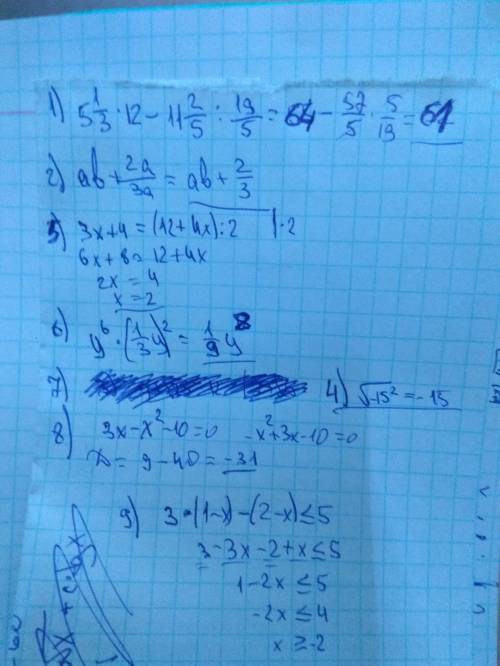 1) 5 1/3 · 12 − 11 2/5 : 19/5 = 64 − 57/5 · 5/19 = 61
2) ab + 2a/3a = ab + 2/3
5) 3x+4 = (12+4x):2 |·2
6x+8 = 12+4x
2x = 4
x = 2
6) y⁶ · (1/3 y)² = 1/9 y⁸
7)
4) √-15² = -15
8) 3x−x²−10=0 -x²+3x−10=0
D = 9 − 40 = −31
9) 3·(1−x)−(2−x)≤5
3−3x−2+x≤5
1−2x≤5
−2x≤4
x≥−2